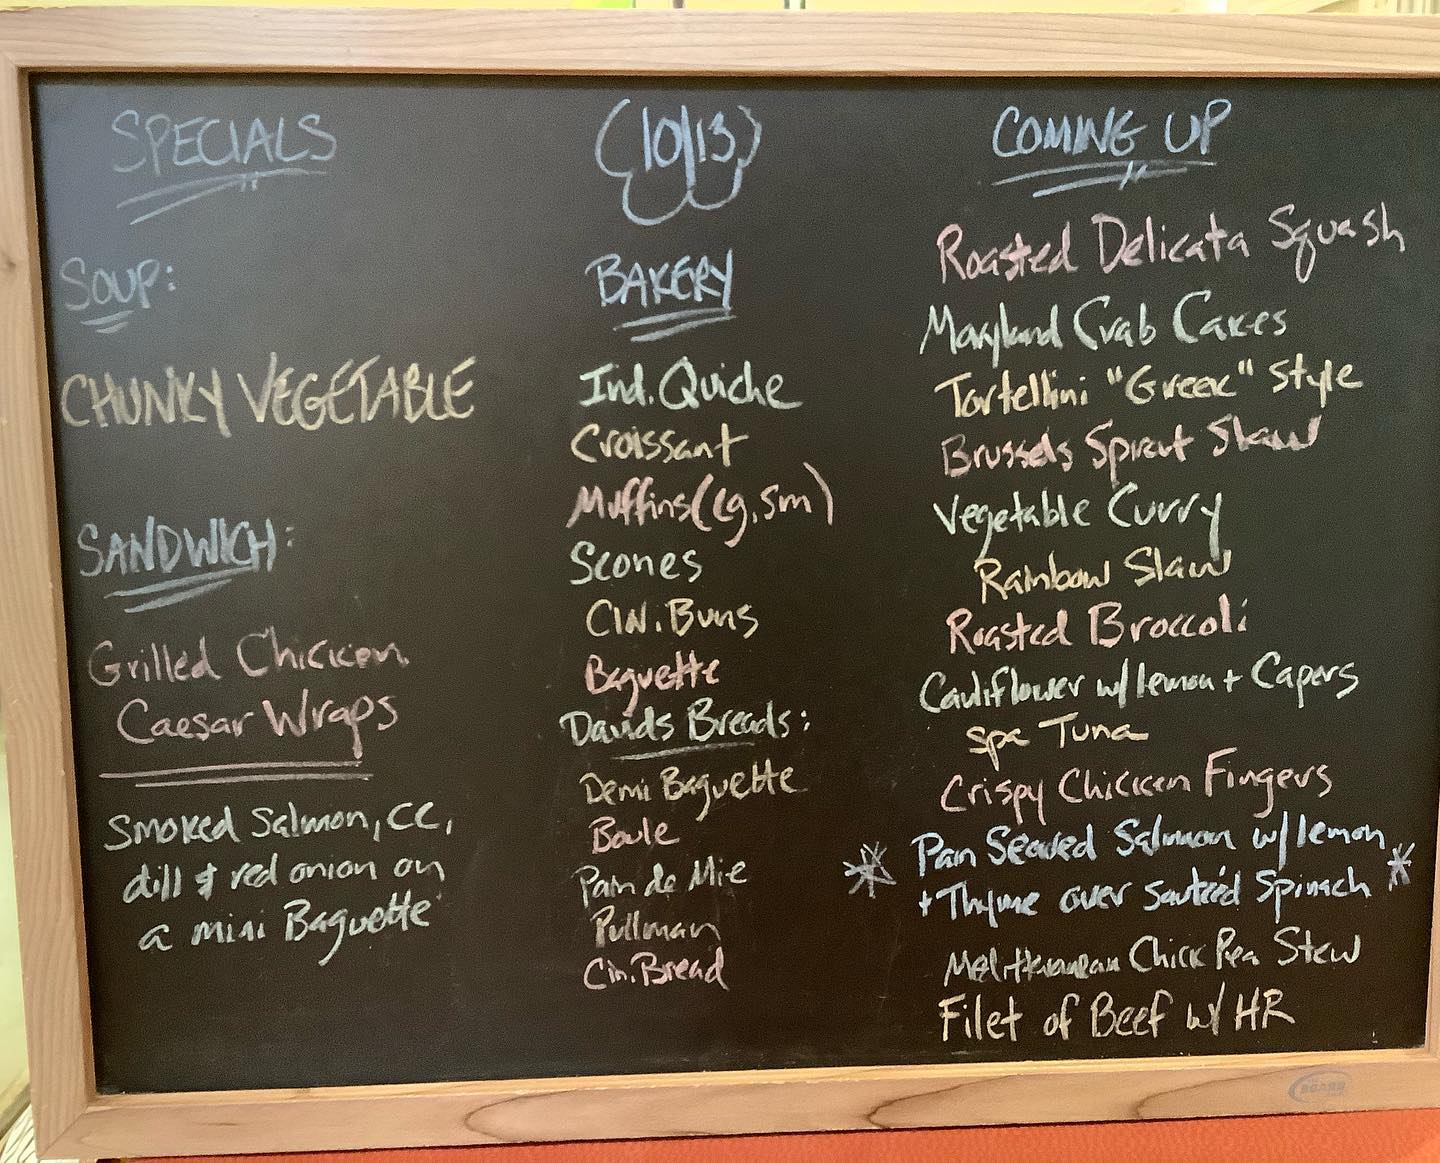 SPECIALS
SOUP:
CHUNKY VEGETABLE
SANDWICH:
Grilled Chicken
Caesar Wraps
Smoked Salmon, CC,
dill & red onion on
a mini Baguette
(10/13)
BAKERY
Ind. Quiche
Croissant
Muffins (lg, sm)
Scones
CIN. Buns
Baguette
Davids Breads:
Demi Baguette
Boule
Pain de Mie
Pullman
Cin. Bread
COMING UP
Roasted Delicata Squash
Maryland Crab Cakes
Tortellini "Greek" Style
Brussels Sprout Slaw
Vegetable Curry
Rainbow Slaw
Roasted Broccoli
Cauliflower w/ lemon + Capers
Spa Tuna
Crispy Chicken Fingers
Pan Seared Salmon w/ lemon
+ Thyme over sauteéd Spinach
Mediterranean Chick Pea Stew
Filet of Beef w/ HR